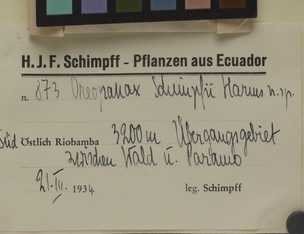 H. J. F. Schimpff - Pflanzen aus Ecuador
n. 873 Oreopanax Schimpffii Harms n. sp.
Süd Östlich Riobamba 3200m Übergangsgebiet
zwischen Wald u. Paramo
21. III. 1934 leg. Schimpff